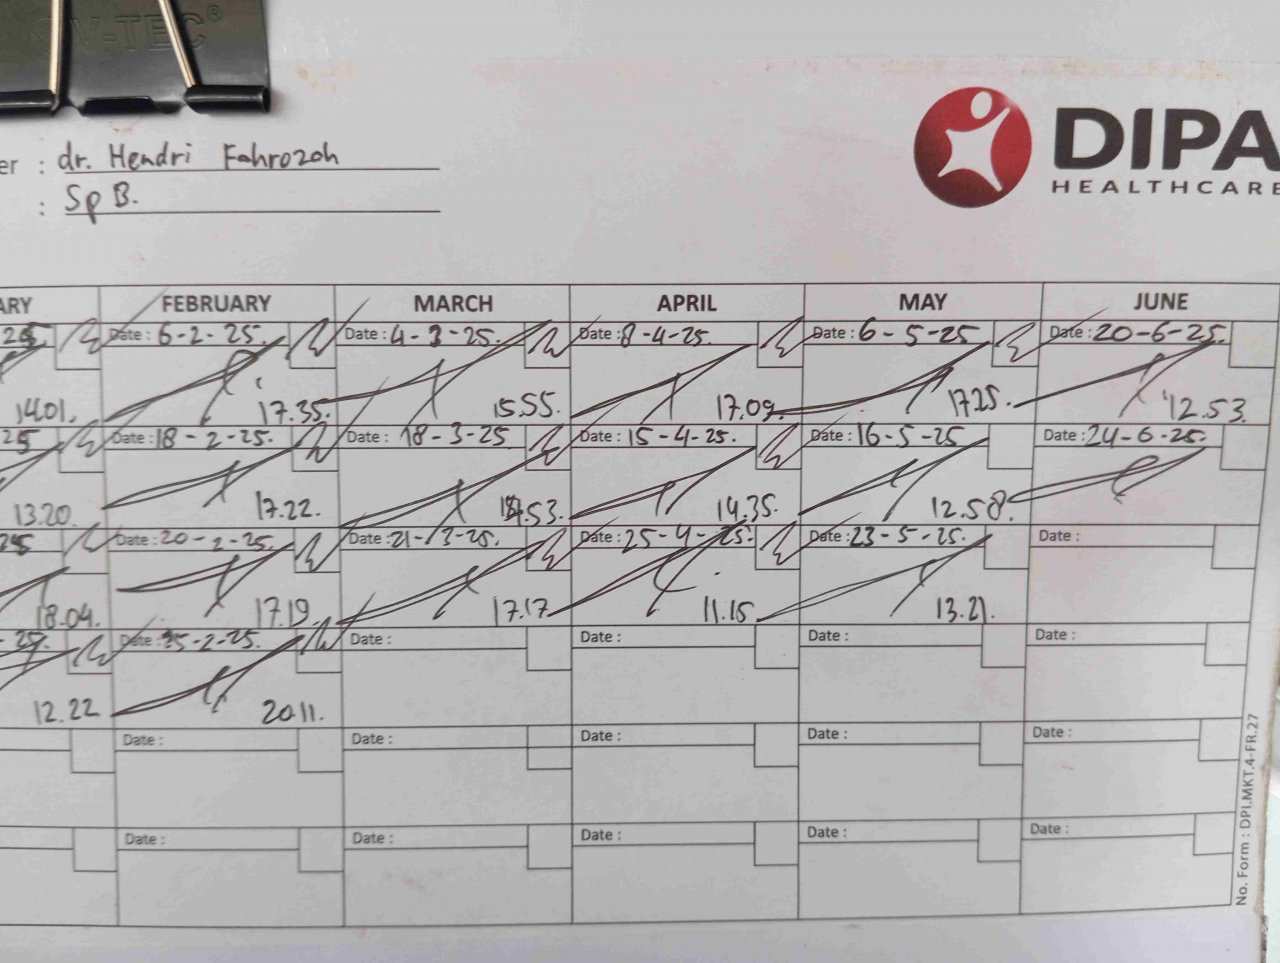 V-TEC®
er : dr. Hendri Fahrozoh
: Sp B.
DIPA
HEALTHCARE
ARY FEBRUARY MARCH APRIL MAY JUNE
25 Date : 6-2-25. Date : 4-3-25. Date : 8-4-25. Date : 6-5-25 Date : 20-6-25.
14.01. 17.35. 15.55. 17.09. 17.25. 12.53.
25 Date : 18-2-25. Date : 18-3-25 Date : 15-4-25. Date : 16-5-25 Date : 24-6-25.
13.20. 17.22. 53. 14.35. 12.58.
25 Date : 20-2-25. Date : 21-3-25. Date : 25-4-25. Date : 23-5-25. Date :
18.04. 17.19. 17.17 11.15 13.21.
-25. Date : 25-2-25. Date : Date : Date : Date :
12.22 20.11.
Date : Date : Date : Date : Date :
Date : Date : Date : Date : Date :
No. Form : DPI.MKT.4-FR.27